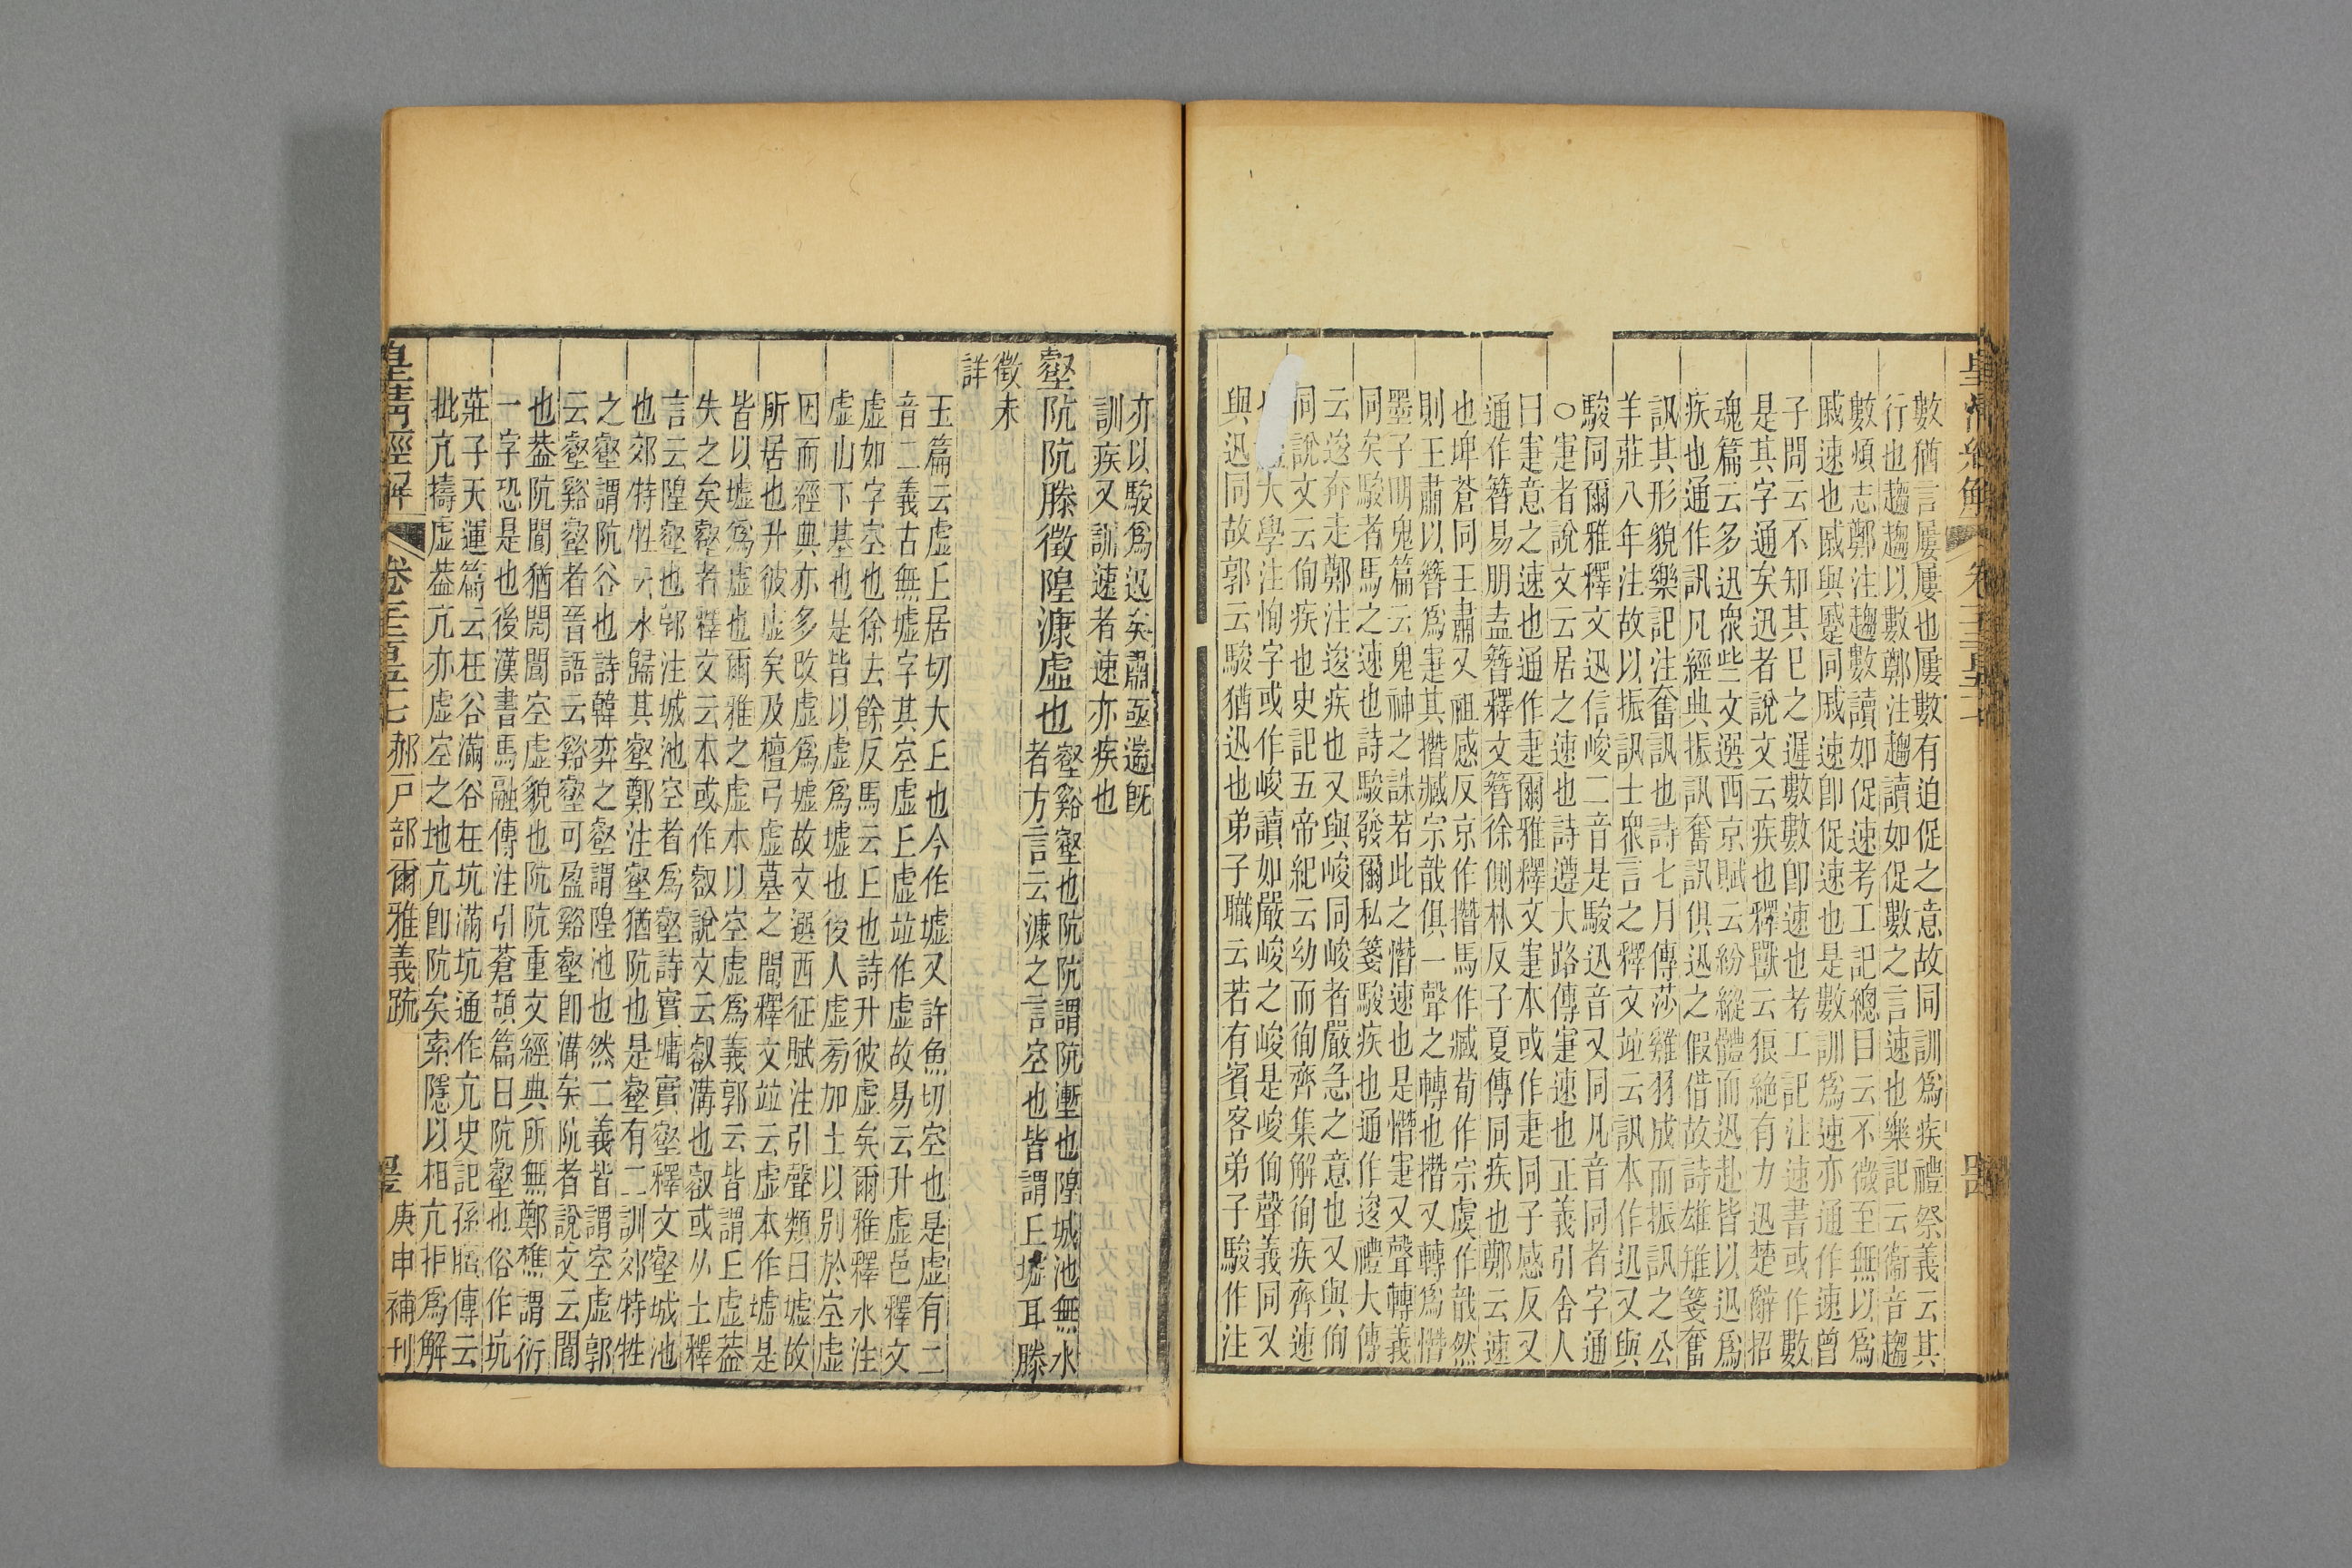 皇清經解
數猶言屢屢也屢數有迫促之意故同訓爲疾禮祭義云其
行也趨趨以數鄭注趨讀如促數之言速也樂記云衞音趨
數煩志鄭注趨數讀如促速考工記總目云不微至無以爲
戚速也戚與蹙同戚速卽促速也是數訓爲速亦通作速曾
子問云不知其巳之遲數數卽速也考工記注速書或作數
是其字通矣迅者說文云疾也釋獸云狼絕有力迅楚辭招
魂篇云多迅眾些文選西京賦云紛縱體而迅赴皆以迅爲
疾也通作訊凡經典振訊奮訊俱迅之假借故詩雄雉箋奮
訊其形貌樂記注奮訊也詩七月傳莎雞羽成而振訊之公
羊莊八年注故以振訊士眾言之釋文竝云訊本作迅又與
駿同爾雅釋文迅信峻二音是駿迅音又同凡音同者字通
○寁者說文云居之速也詩遵大路傳寁速也正義引舍人
曰寁意之速也通作疌爾雅釋文寁本或作疌同子感反又
通作簪易朋盍簪釋文簪徐側林反子夏傳同疾也鄭云速
也埤蒼同王肅又祖感反京作撍馬作臧荀作宗虞作戠然
則王肅以簪爲寁其撍臧宗戠俱一聲之轉也撍又轉爲憯
墨子明鬼篇云鬼神之誅若此之憯速也是憯寁又聲轉義
同矣駿者馬之速也詩駿發爾私箋駿疾也通作逡禮大傳
云逡奔走鄭注逡疾也又與峻同峻者嚴急之意也又與侚
同說文云侚疾也史記五帝紀云幼而徇齊集解徇疾齊速
大學注恂字或作峻讀如嚴峻之峻是峻侚聲義同又
與迅同故郭云駿猶迅也弟子職云若有賓客弟子駿作注
亦以駿爲迅矣肅亟遄旣
訓疾又訓速者速亦疾也
壑阬阬滕徵隍漮虛也
壑谿壑也阬阬謂阬壍也隍城池無水
者方言云漮之言空也皆謂丘墟耳滕
徵未
詳
玉篇云虛丘居切大丘也今作墟又許魚切空也是虛有二
音二義古無墟字其空虛丘虛竝作虛故易云升虛邑釋文
虛如字空也徐去餘反馬云丘也詩升彼虛矣爾雅釋水注
虛山下基也是皆以虛爲墟也後人虛旁加土以別於空虛
因而經典亦多改虛爲墟故文選西征賦注引聲類曰墟故
所居也升彼虛矣及檀弓虛墓之閒釋文竝云虛本作墟是
皆以墟爲虛也爾雅之虛本以空虛爲義郭云皆謂丘虛葢
失之矣壑者釋文云本或作叡說文云叡溝也叡或从土釋
言云隍壑也郭注城池空者爲壑詩實墉實壑釋文壑城池
也郊特牲云水歸其壑鄭注壑猶阬也是壑有二訓郊特牲
之壑謂阬谷也詩韓弈之壑謂隍池也然二義皆謂空虛郭
云壑谿壑者晉語云谿壑可盈谿壑卽溝矣阬者說文云閬
也葢阬閬猶閌閬空虛貌也阬阬重文經典所無鄭樵謂衍
一字恐是也後漢書馬融傳注引蒼頡篇曰阬壑也俗作坑
莊子天運篇云在谷滿谷在坑滿坑通作亢史記孫臏傳云
批亢擣虛葢亢亦虛空之地亢卽阬矣索隱以相亢拒爲解
皇淸經解
卷千二百五十七
郝戸部爾雅義疏
庚申補刊